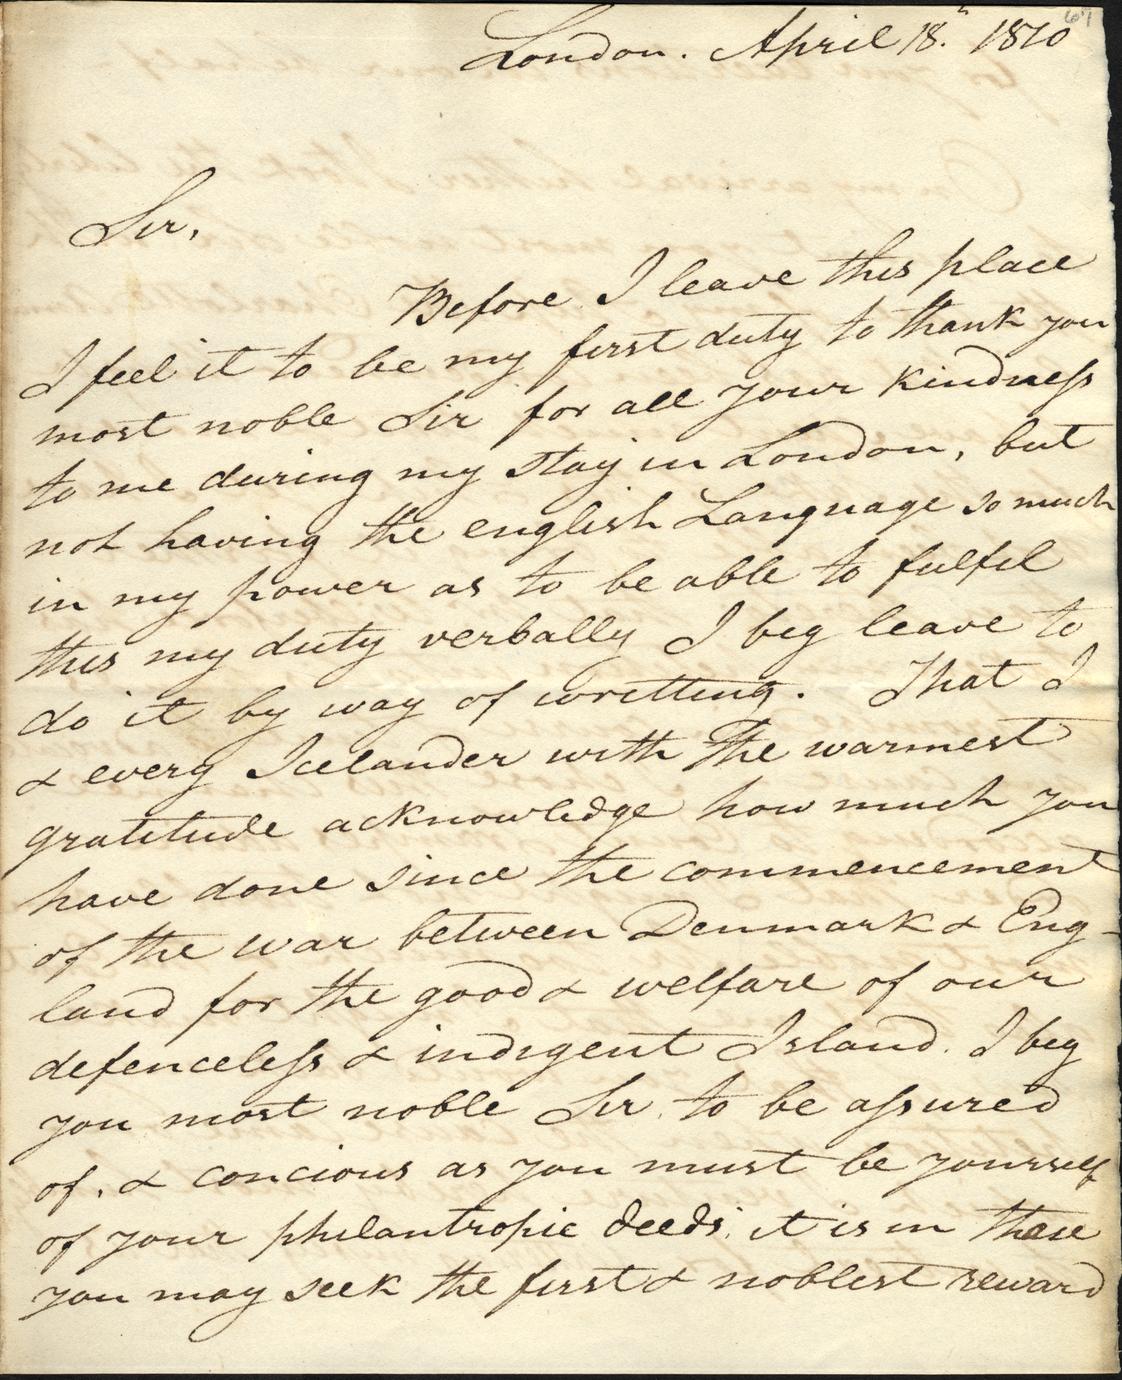 67
London. April 18.h 1810
Sir,
Before I leave this place
I feel it to be my first duty to thank you
most noble Sir for all your kindness
to me during my stay in London, but
not having the english Language so much
in my power as to be able to fulfil
this my duty verbally I beg leave to
do it by way of writting. That I
& every Icelander with the warmest
gratitude acknowledge how much you
have done since the commencement
of the war between Denmark & Eng-
land for the good & welfare of our
defenceless & indigent Island. I beg
you most noble Sir to be assured
of, & concious as you must be yourself
of your philantropic deeds, it is in these
you may seek the first & noblest reward